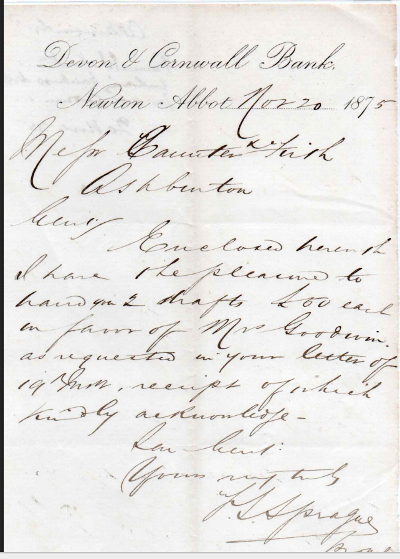 Devon & Cornwall Bank.
Newton Abbot Nov 20 1875
Messr Caunter & Firth
Ashburton
Gent
Enclosed herewith
I have the pleasure to
hand you 2 drafts £00 each
in favor of Mrs Goodwin.
as requested in your letter of
19th Inst, receipt of which
kindly acknowledge -
Gent:
Yours
Sprague